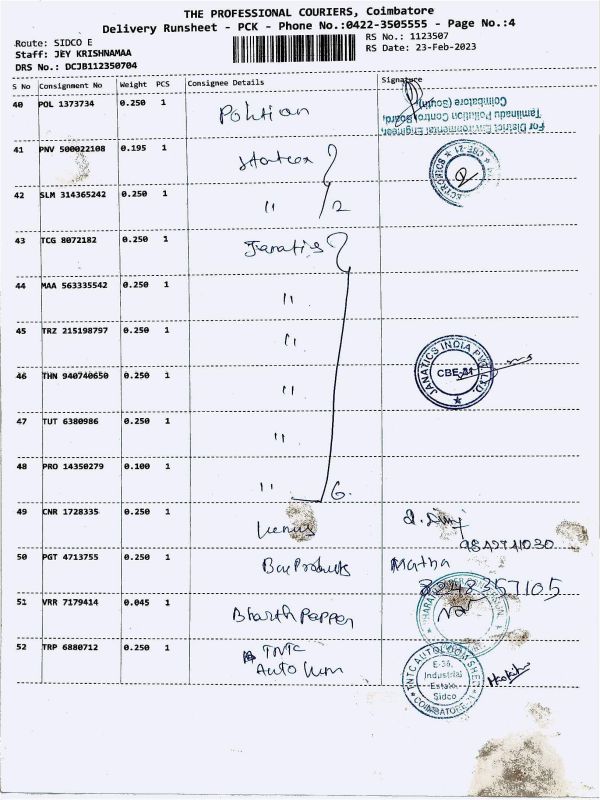 THE PROFESSIONAL COURIERS, Coimbatore
Delivery Runsheet - PCK - Phone No.:0422-3505555 - Page No.:4
Route: SIDCO E
RS No.: 1123507
Staff: JEY KRISHNAMAA
RS Date: 23-Feb-2023
DRS No.: DCJB112350704
S No Consignment No Weight PCS Consignee Details Signature
40 POL 1373734 0.250 1
For District Environmental Engineer,
Tamilnadu Pollution Control Board,
Coimbatore (South).
41 PNV 500022108 0.195 1
CBE-21
42 SLM 314365242 0.250 1 " 2
43 TCG 8072182 0.250 1 Janatics
44 MAA 563335542 0.250 1 "
45 TRZ 215198797 0.250 1 "
46 THN 940740650 0.250 1 "
JANATICS INDIA PVT. LTD.
CBE-21
47 TUT 6380986 0.250 1 "
48 PRO 14350279 0.100 1 " 6
49 CNR 1728335 0.250 1 Venus
50 PGT 4713755 0.250 1 Products Matha
8248357105
51 VRR 7179414 0.045 1 Bharth Papper
52 TRP 6880712 0.250 1 TNTC
Auto
TNTC AUTOLOOM SHED
E-36,
Industrial
Estate,
Sidco
COIMBATORE-21